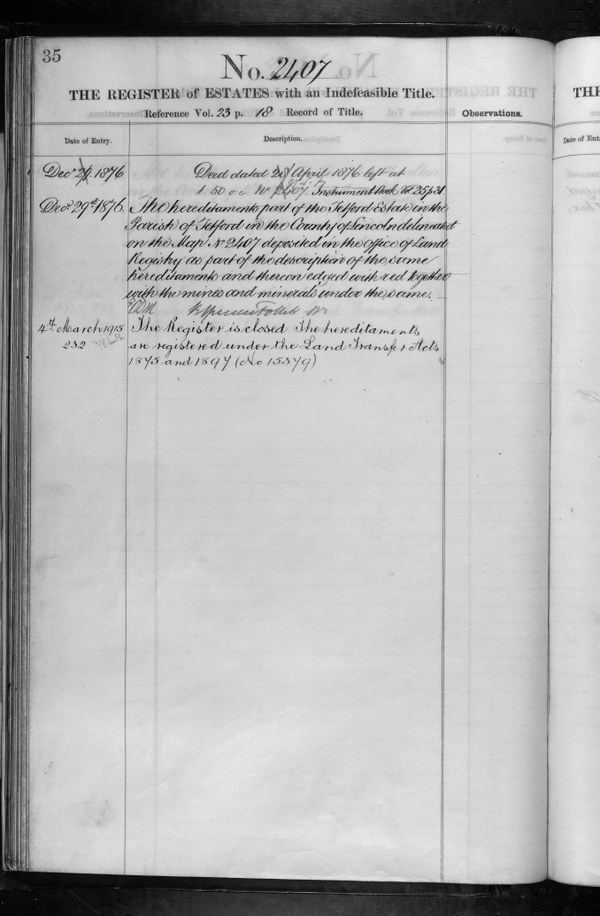 35
No. 2407
THE REGISTER of ESTATES with an Indefeasible Title.
Reference Vol. 23 p. 18 Record of Title.
Observations.
Date of Entry.
Description.
Decr 1876
Deed dated April 1876 left at
1.50 o.c. No 2407. Instrument Book Vol 25 p
Decr 29th 1876.
The hereditaments part of the Telford Estate in the
Parish of Telford in the County of Lincoln delineated
on the Map No 2407 deposited in the office of Land
Registry as part of the description of the same
hereditaments and thereon edged with red together
with the mines and minerals under the same.
4th March 1915
232
The Register is closed The hereditaments
are registered under the Land Transfer Acts
1875 and 1897 (No 15379)
TH
Date of Ent